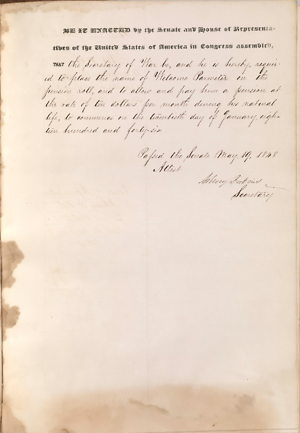 BE IT ENACTED by the Senate and House of Representa-
tives of the United States of America in Congress assembled,
THAT the Secretary of War be, and he is hereby, requi-
red to place the name of Welcome Parmeter on the
pension roll, and to allow and pay him a pension at
the rate of ten dollars per month during his natural
life, to commence on the twentieth day of January eigh-
teen hundred and forty-six
Passed the Senate May 19, 1848
Attest
Asbury Dickins
Secretary